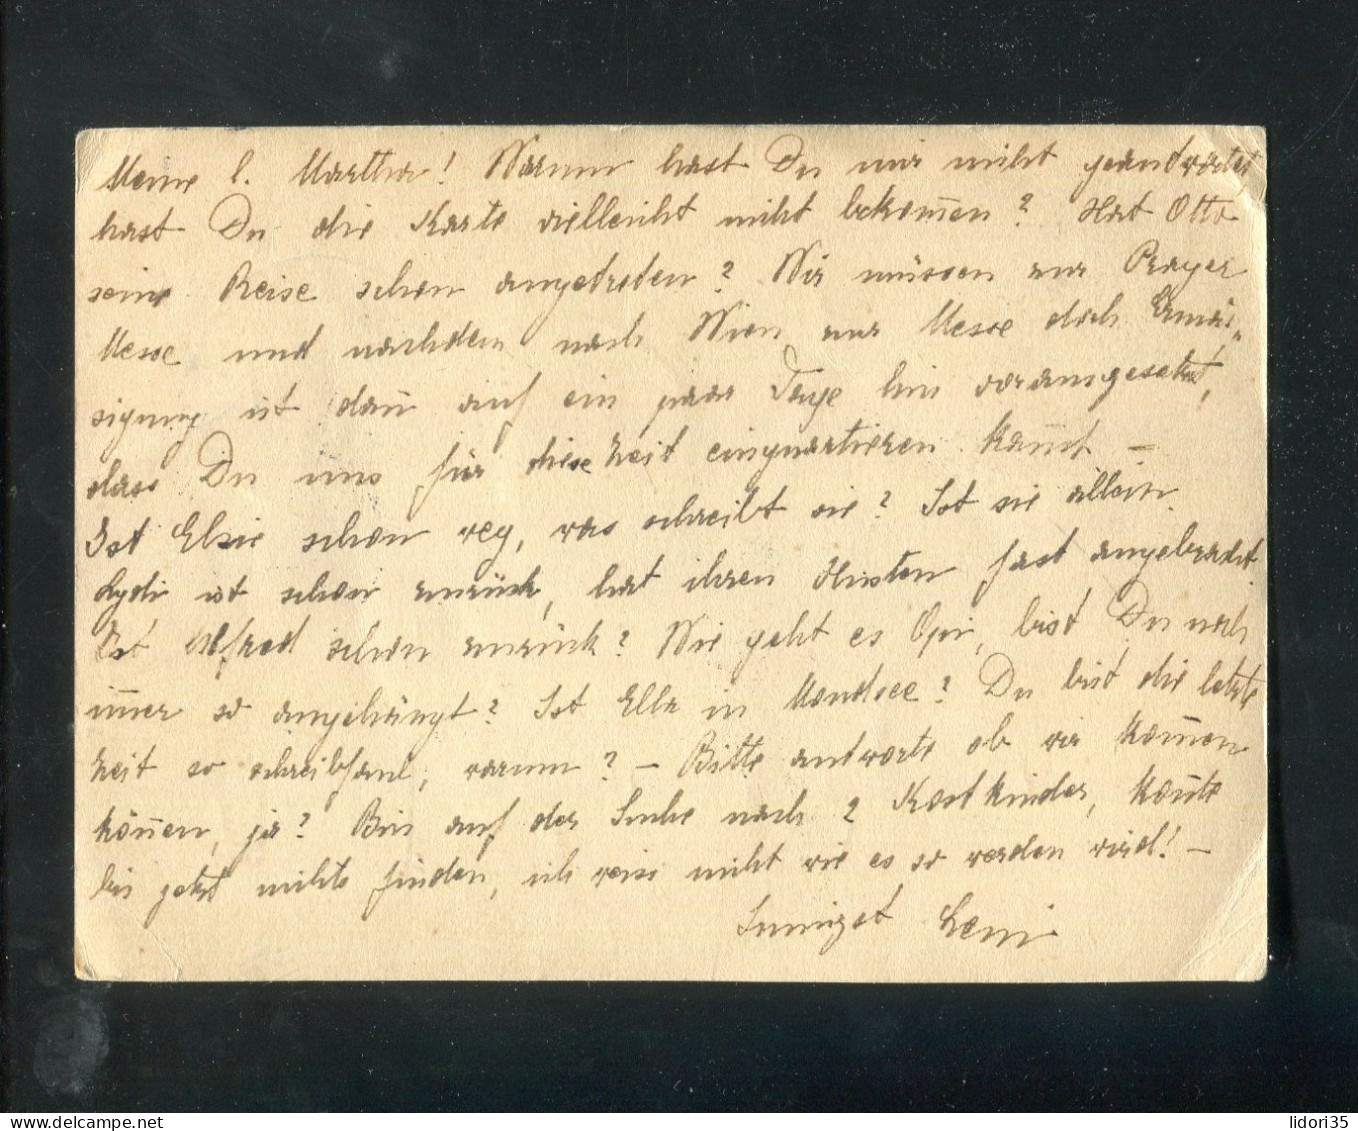 Meine l. Martha! Warum hast Du mir nicht geantwortet
hast Du die Karte vielleicht nicht bekom̅en? Hat Otto
seine Reise schon angetreten? Wir müssen zur Prager
Messe und nachdem nach Wien zur Messe doch Ermäs-
sigung ist dan̅ auf ein paar Tage hin vorausgesetzt,
dass Du uns für diese Zeit einquartieren kan̅st –
Ist Elsie schon weg, was schreibt sie? Ist sie allein.
Lydi ist schon zurück, hat ihren Husten fast angebracht.
Ist Alfred schon zurück? Wie geht es Opi, bist Du noch
im̅er so angehängt? Ist Ella in Mondsee? Du bist die letzte
Zeit so schreibfaul, warum? – Bitte antworte ob wir kom̅en
kön̅en, ja? Bin auf der Suche nach 2 Kostkinder, kon̅te
bis jetzt nichts finden, ich weiss nicht wie es so werden wird! –
Leni
lidori35